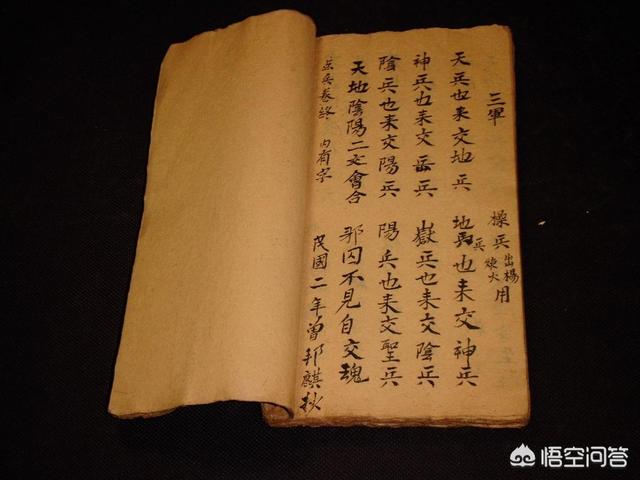 三軍 操兵 出楊 煉火 用
天兵也来交地兵 地兵也来交神兵
神兵也来交岳兵 嶽兵也来交陰兵
陰兵也来交陽兵 陽兵也来交聖兵
天地陰陽二文會合 邪囚不見自交魂
兵卷終 内有字 民國二年曾邦麒抄
悟空问答